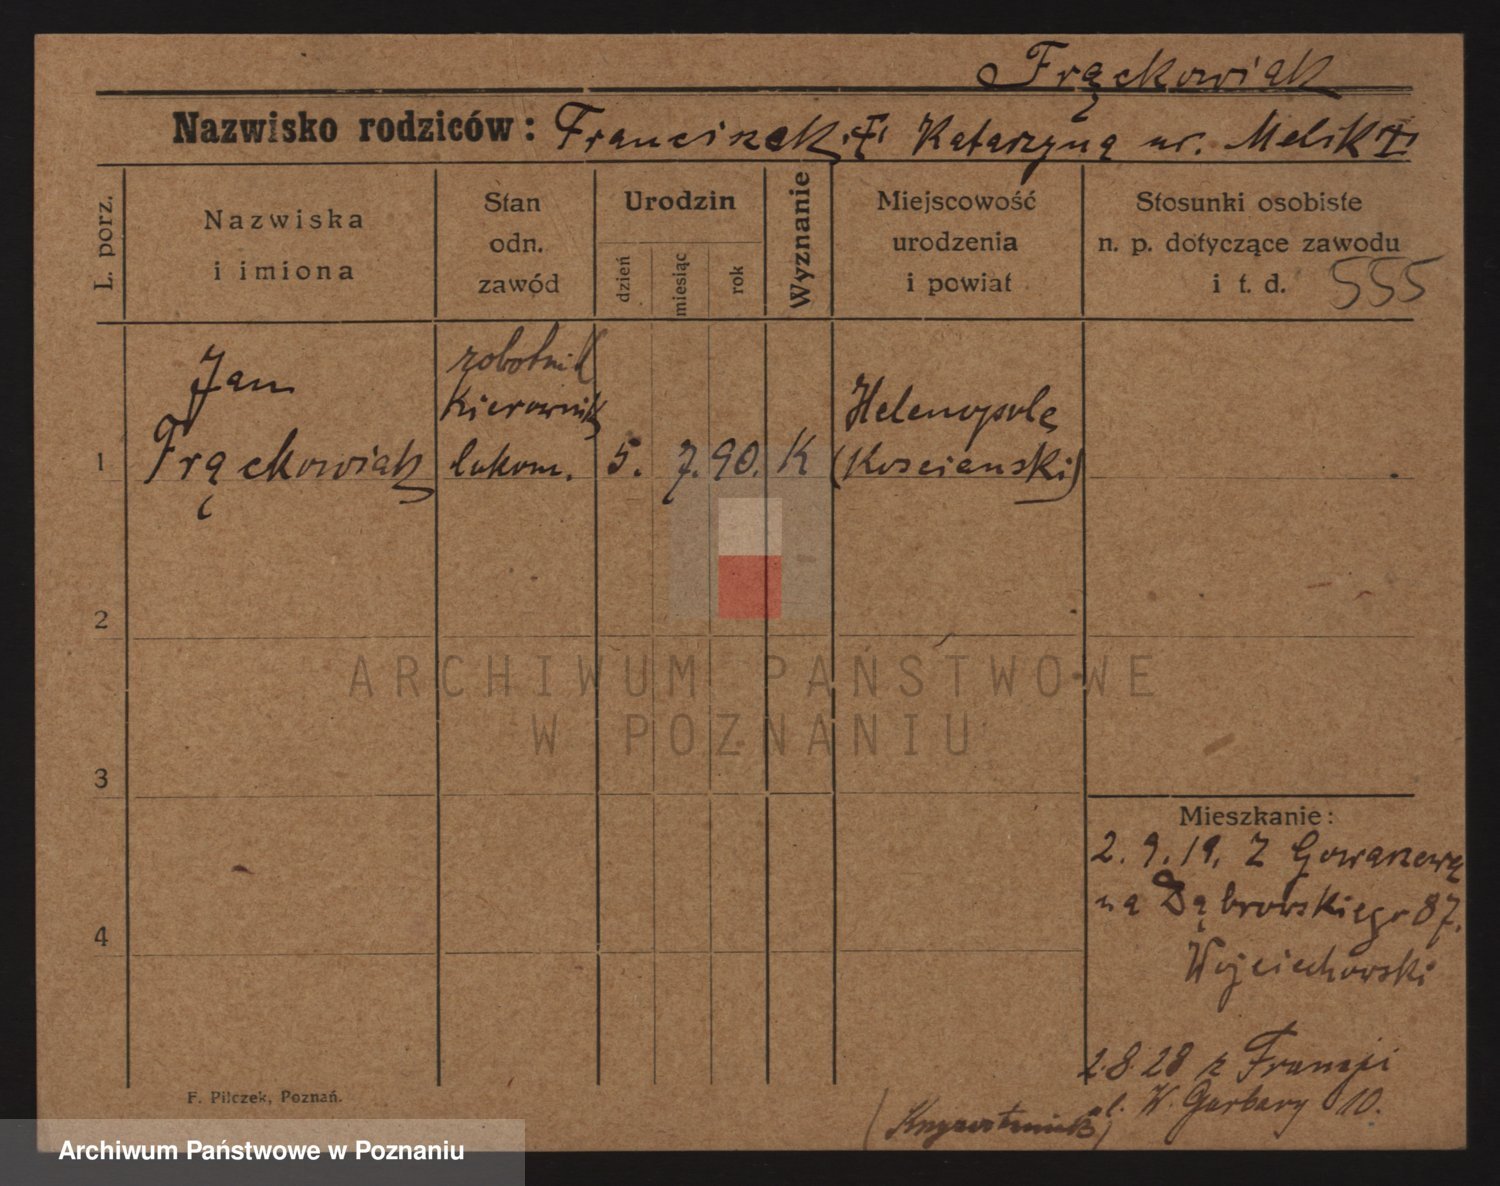 Frąckowiak
Nazwisko rodziców: Franciszek. Katarzyna ur. Melsk
L. porz.
Nazwiska
i imiona
Stan
odn.
zawód
Urodzin
dzień
miesiąc
rok
Wyznanie
Miejscowość
urodzenia
i powiat
Stosunki osobiste
n. p. dotyczące zawodu
i t. d. 555
Jan
robotnik
Kierownik
Helenopole
1 Frąckowiak lokom. 5. 7. 90. K (Koscianski)
2
ARCHIWUM PAŃSTWOWE
W POZNANIU
3
Mieszkanie:
2. 9. 19. Z Gowarzewa
4
na Dąbrowskiego 87.
Wojciechowski
2.8.28 z Francji
W. Garbary 10.
F. Pilczek, Poznań.
Archiwum Państwowe w Poznaniu